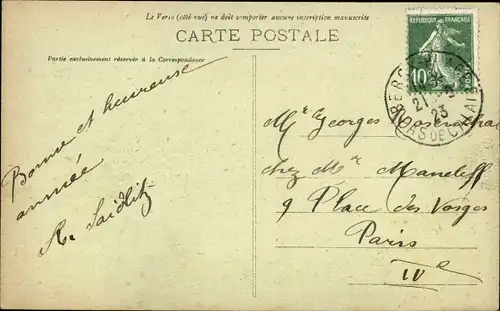 Le Verso (côté vue) ne doit comporter aucune inscription manuscrite
CARTE POSTALE
Partie exclusivement réservée à la Correspondance
REPUBLIQUE FRANÇAISE
10
POSTES
BERCK
21
23
PAS DE CALAIS
Bonne et heureuse
année
R. Saidlitz
Mr Georges Rosenthal
chez Mr Maneleff
9 Place des Vosges
Paris
IVe